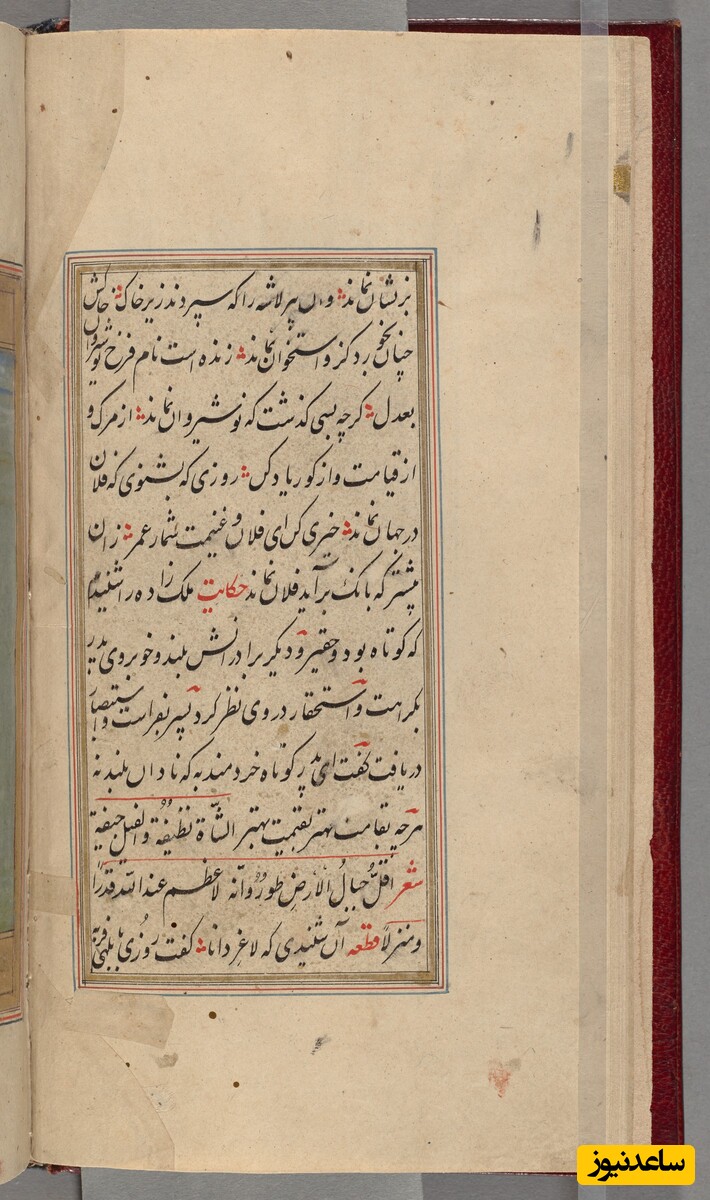 بر نشان نماند وان پیر لاشه را که سپردند زیر خاک خاکش
چنان بخورد کزو استخوان نماند زنده است نام فرخ نوشیروان
بعدل کرچه بسی کذشت که نوشیروان نماند از مرک و
از قیامت و از کور یاد کن روزی که بشنوی که فلان
در جهان نماند خیری کن ای فلان و غنیمت شمار عمر زان
پیشتر که بانک برآید فلان نماند حکایت ملک زاده را شنیدم
که کوتاه بود و حقیر و دیکر برادرانش بلند و خوبروی پدر
بکراهت و استحقار در وی نظر کرد پسر بفراست و استبصار
دریافت کفت ای پدر کوتاه خردمند به که نادان بلند نه
هرچه بقامت مهتر بقیمت بهتر الشاة نظیفة والفیل جیفة
شعر اقلّ جبالُ الارضِ طورُ وانه لاعظم عند الله قدرا
ومنزلا قطعه آن شنیدی که لاغر دانا کفت روزی بابلهی فربه
ساعدنیوز